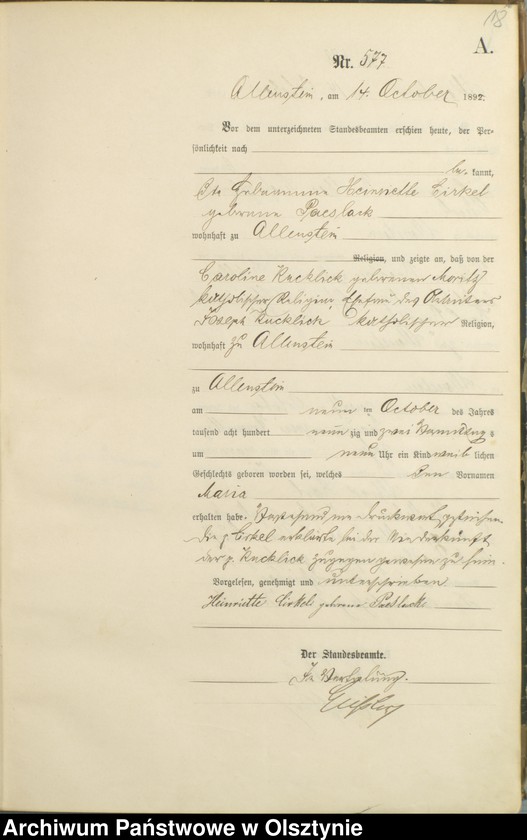 18
A.
Nr. 577
Allenstein, am 14. October 1892.
Vor dem unterzeichneten Standesbeamten erschien heute, der Per-
sönlichkeit nach
be- kannt,
die Hebamme Henriette Cirkel
geborene Paeslack
wohnhaft zu Allenstein
Religion, und zeigte an, daß von der
Caroline Kucklick geborenen Moritz
katholischer Religion, Ehefrau des Arbeiters
Joseph Kucklick katholischer Religion,
wohnhaft zu Allenstein
zu Allenstein
am neun ten October des Jahres
tausend acht hundert neun zig und zwei Vormittags
um neun Uhr ein Kind weib lichen
Geschlechts geboren worden sei, welches den Vornamen
Maria
erhalten habe. Vorstehend ein Druckwort gestrichen.
Die p. Cirkel erklärte bei der Niederkunft
der p. Kucklick zugegen gewesen zu sein.
Vorgelesen, genehmigt und unterschrieben
Heinriette Cirkel geborene Paeslack
Der Standesbeamte.
In Vertretung.
Archiwum Państwowe w Olsztynie